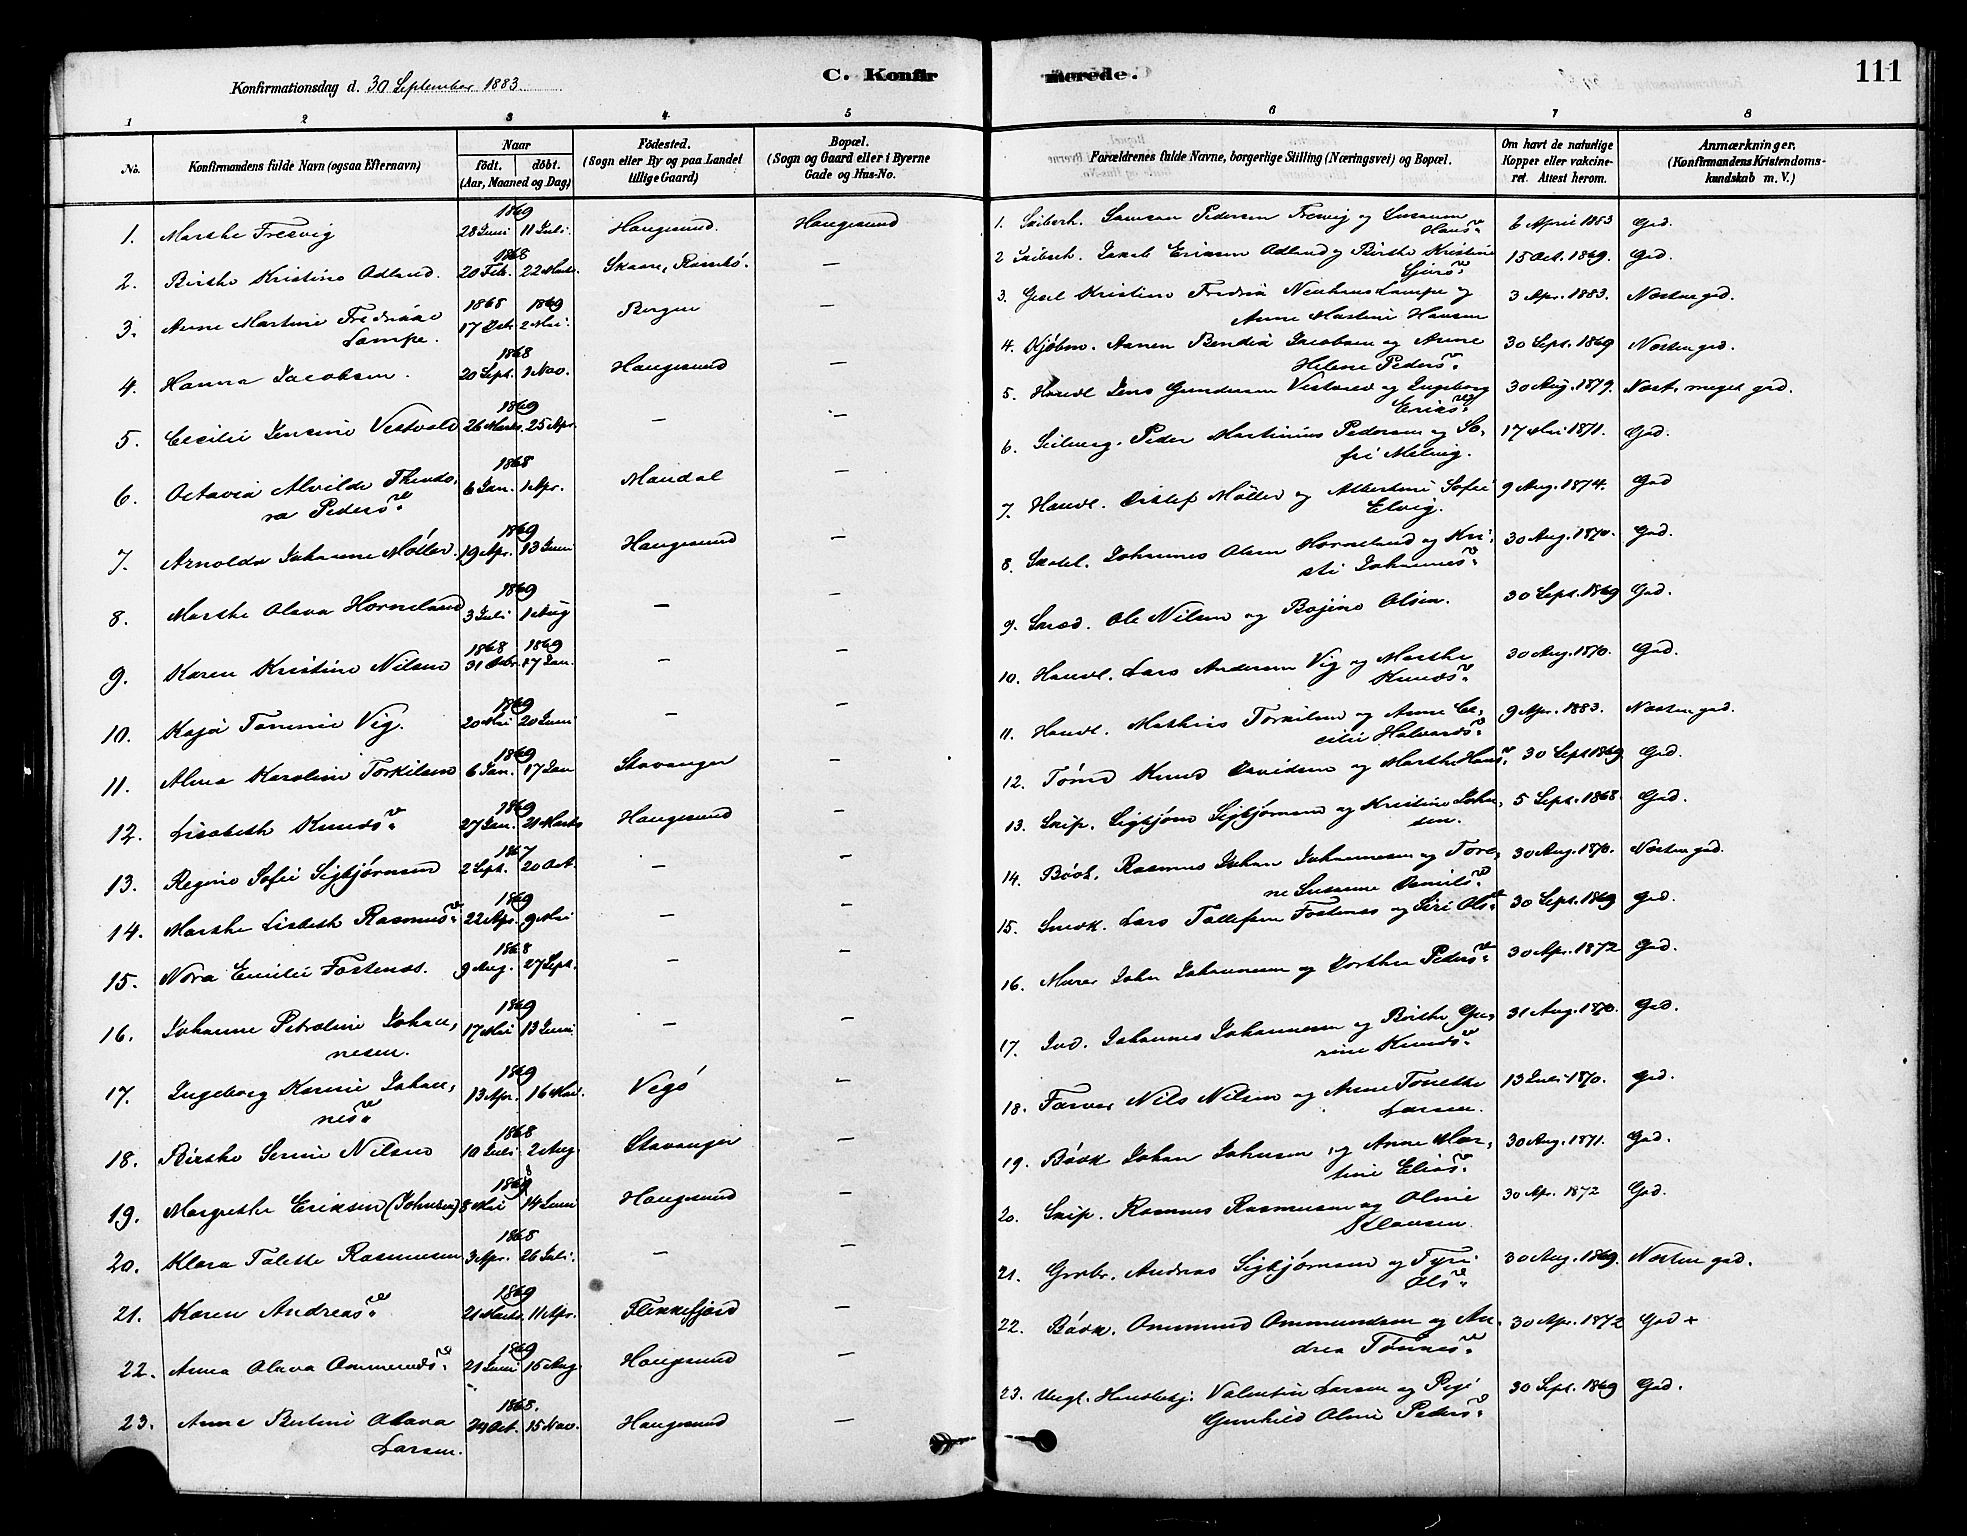 Konfirmationsdag d. 30 September 1883.
C. Konfir
merede.
111
1 2 3 4 5
6 7 8
No.
Konfirmandens fulde Navn (ogsaa Efternavn)
Naar
födt. döbt.
(Aar, Maaned og Dag)
Födested.
(Sogn eller By og paa Landet
tillige Gaard)
Bopæl.
(Sogn og Gaard eller i Byerne
Gade og Hus-No.
Forældrenes fulde Navne, borgerlige Stilling (Næringsvei) og Bopæl.
Om havt de naturlige
Kopper eller vakcine-
ret. Attest herom.
Anmærkninger.
(Konfirmandens Kristendoms-
kundskab m. V.)
1869
1. Marthe Tresvig 28 Juni 11 Juli Haugesund. Haugesund
1868
2. Birthe Kristine Adland. 20 Feb. 22 Marts Skaare, —
1868 1869
3. Anne Martine Fredrikke 2 Mai. Bergen —
Lampe.
1868
4. Hanna Jacobsen. 20 Sept. 1 Nov. Haugesund —
1869
5. Cecilie Jensine Vestvold 26 Marts 25 Apr. — —
1868
6. Octavia Alvilde Theodo- 6 Jan. 1 Apr. Mandal —
ra Pedersd.
1869
7. Arnolda Johanne Møller. 19 Apr. 13 Juni Haugesund —
1869
8. Marthe Olava Horneland 3 Juli 1 Aug — —
1868 1869
9. Karen Kristine Nilsen 31 17 Jan. — —
1869
10. Kaja Tomine Vig. 20 Mai 20 Juni — —
1869
11. Alma Karoline Torkilsen 6 Jan. 17 Jan Stavanger —
1869
12. Lisabeth Knudsd. 27 Jan. 21 Marts Haugesund —
1867
13. Regine Sofie Sigbjørnsen 2 Sept. 20 Oct. — —
1869
14. Marthe Lisbeth Rasmusd. 22 Apr. 9 Mai — —
1868
15. Nora Emilie Fostenæs. 9 Aug. 27 Sept. — —
1869
16. Johanne Petroline Johan- 17 Mai 13 Juni — —
nesen.
1869
17. Ingeborg Karine Johan- 13 Apr. 16 Mai. Vegø —
nesd.
1868
18. Birthe Serine Nilsen 10 Juli 2 Aug Stavanger —
19. Margrethe Eriksen (Johnsen) 8 Mai 14 Juni Haugesund —
1868
20. Klara Talette Rasmussen 3 Apr. 26 Juli. — —
1869
21. Karen Andreasd. 21 Marts 11 Apr. Flekkefjord —
1869
22. Anna Olava Ommundsd. 21 Juni 15 Aug Haugesund —
1868.
23. Anne Bertine Olava 29 Oct. 15 Nov. Haugesund —
Larsen.
1. Skibsrh. Samson Pedersen Tresvig og Susanne 6 April 1883 God.
Hansd.
2 Skibsrh. Jakob Eriksen Adland og Birthe Kristine 15 Oct. 1869. God.
Sjursd.
3. Kristine Fredrik Neuhaus Lampe og 3 Apr. 1883. Næsten god.
Anne Martine Hansen
4. Kjøbm. Aanen Bendix Jacobsen og Anne 30 Sept. 1869 Næsten god.
Helene Pedersd.
5. Handl. Jens Gundersen Vestvold og Ingeborg 30 Aug. 1879. Næst. meget god.
Eriksd.
6. Peder Martinius Pedersen og So- 17 Mai 1871. God.
fie Meling.
7. Handl. Ditlef Møller og Albertine Sofie 9 Aug. 1874. God
Elvig.
8. Johannes Olsen Horneland og Kri- 30 Aug. 1870. God.
sti Johannesd.
9. Ole Nilsen og Bojine Olsen. 30 Sept. 1869 God.
10. Handl. Lars Andersen Vig og Marthe 30 Aug. 1870. God.
Knudsd.
11. Handl. Mathias Torkilsen og Anne Ce- 9 Apr. 1883. Næsten god.
cilie Halvardsd.
12. Tømd Knud Davidsen og Marthe Hansd. 30 Sept 1869 God.
13. Skip. Sigbjørn Sigbjørnsen og Kristine Johan- 5 Sept. 1868. God.
sen.
14. Bødk. Rasmus Johan Johannesen og Tore- 30 Aug. 1870. Næsten god.
ne Susanne Danielsd.
15. Snedk. Lars Tollefsen Fostenæs og Siri Olsd. 30 Sept. 1869 God.
16. Murer John Johannesen og Dorthea Pedersd. 30 Apr. 1872 God
17. Johannes Johannesen og Birthe Gu- 31 Aug. 1870. God.
rine Knudsd.
18. Farver Nils Nilsen og Anne Tonette 13 Juli 1870. God.
Larsen.
19. Bødk Johan Johnsen, og Anne Mar- 30 Aug. 1871. God.
tine Eliasd.
20. Skip. Rasmus Rasmussen og Oline 30 Apr. 1872 God.
Klausen.
21. Andreas Sigbjørnsen og Tyri 30 Aug. 1869. Næsten god.
Olsd.
22. Bødk. Ommund Ommundsen og An- 30 Apr. 1872 God +
drea Tønnesd.
23. Valentin Larsen og Pige 30 Sept. 1869 God.
Gunhild Oline Pedersd.